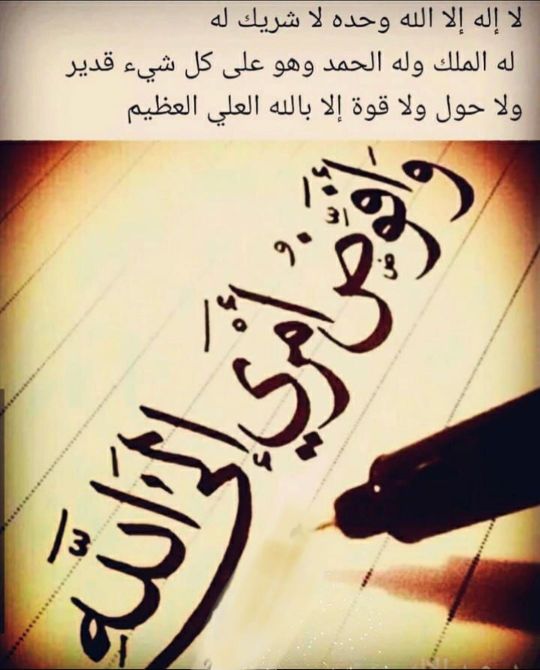 لا إله إلا الله وحده لا شريك له
له الملك وله الحمد وهو على كل شيء قدير
ولا حول ولا قوة إلا بالله العلي العظيم
وَأُفَوِّضُ أَمْرِي إِلَى اللَّهِ